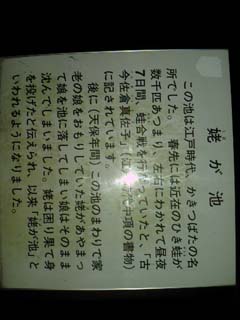 姥が池
この池は江戸時代、かきつばたの名
所でした。春先には近在のひき蛙が
数千匹あつまり、左右にわかれて昼夜
7日間、蛙合戦を行なっていたと、「古
今佐倉真佐子」(江 中頃の書物)
に記されています。
後に(天保年間)この池のまわりで家
老の娘をおもりしていた姥があやまっ
て娘を池に落してしまい娘はそのまま
沈んでしまいました。姥は困り果て身
を投げたと伝えられ、以来「姥が池」と
いわれるようになりました。